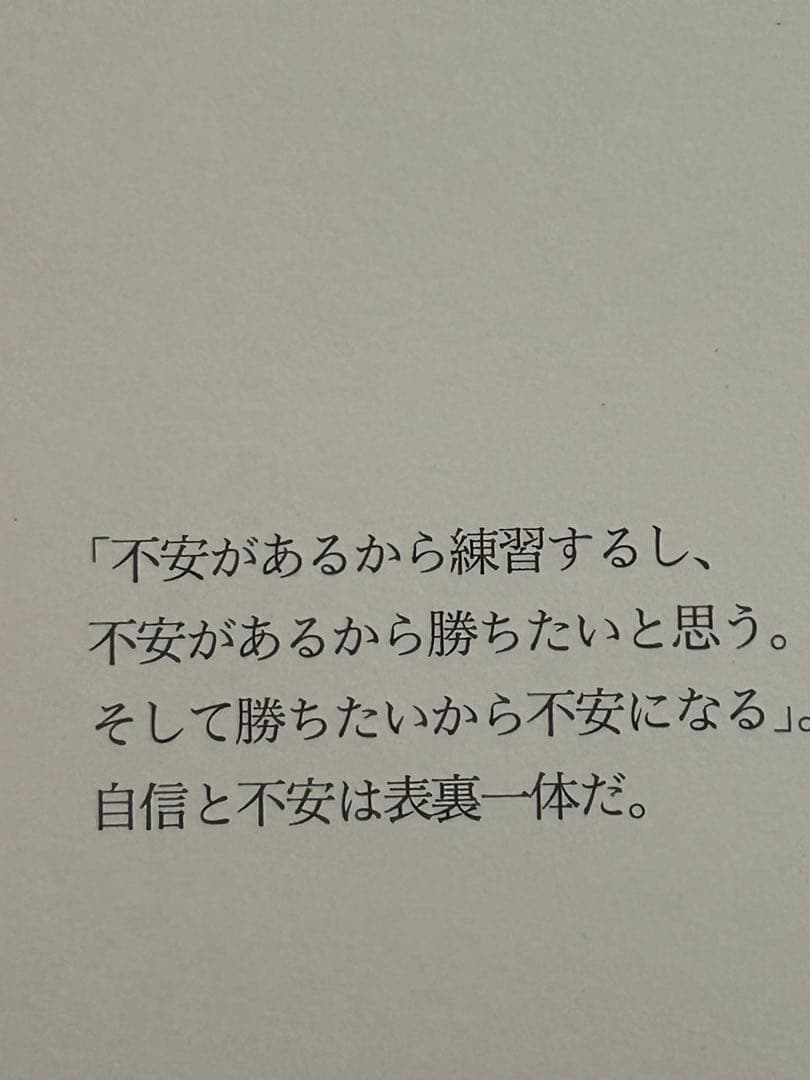 「不安があるから練習するし、
不安があるから勝ちたいと思う。
そして勝ちたいから不安になる」。
自信と不安は表裏一体だ。